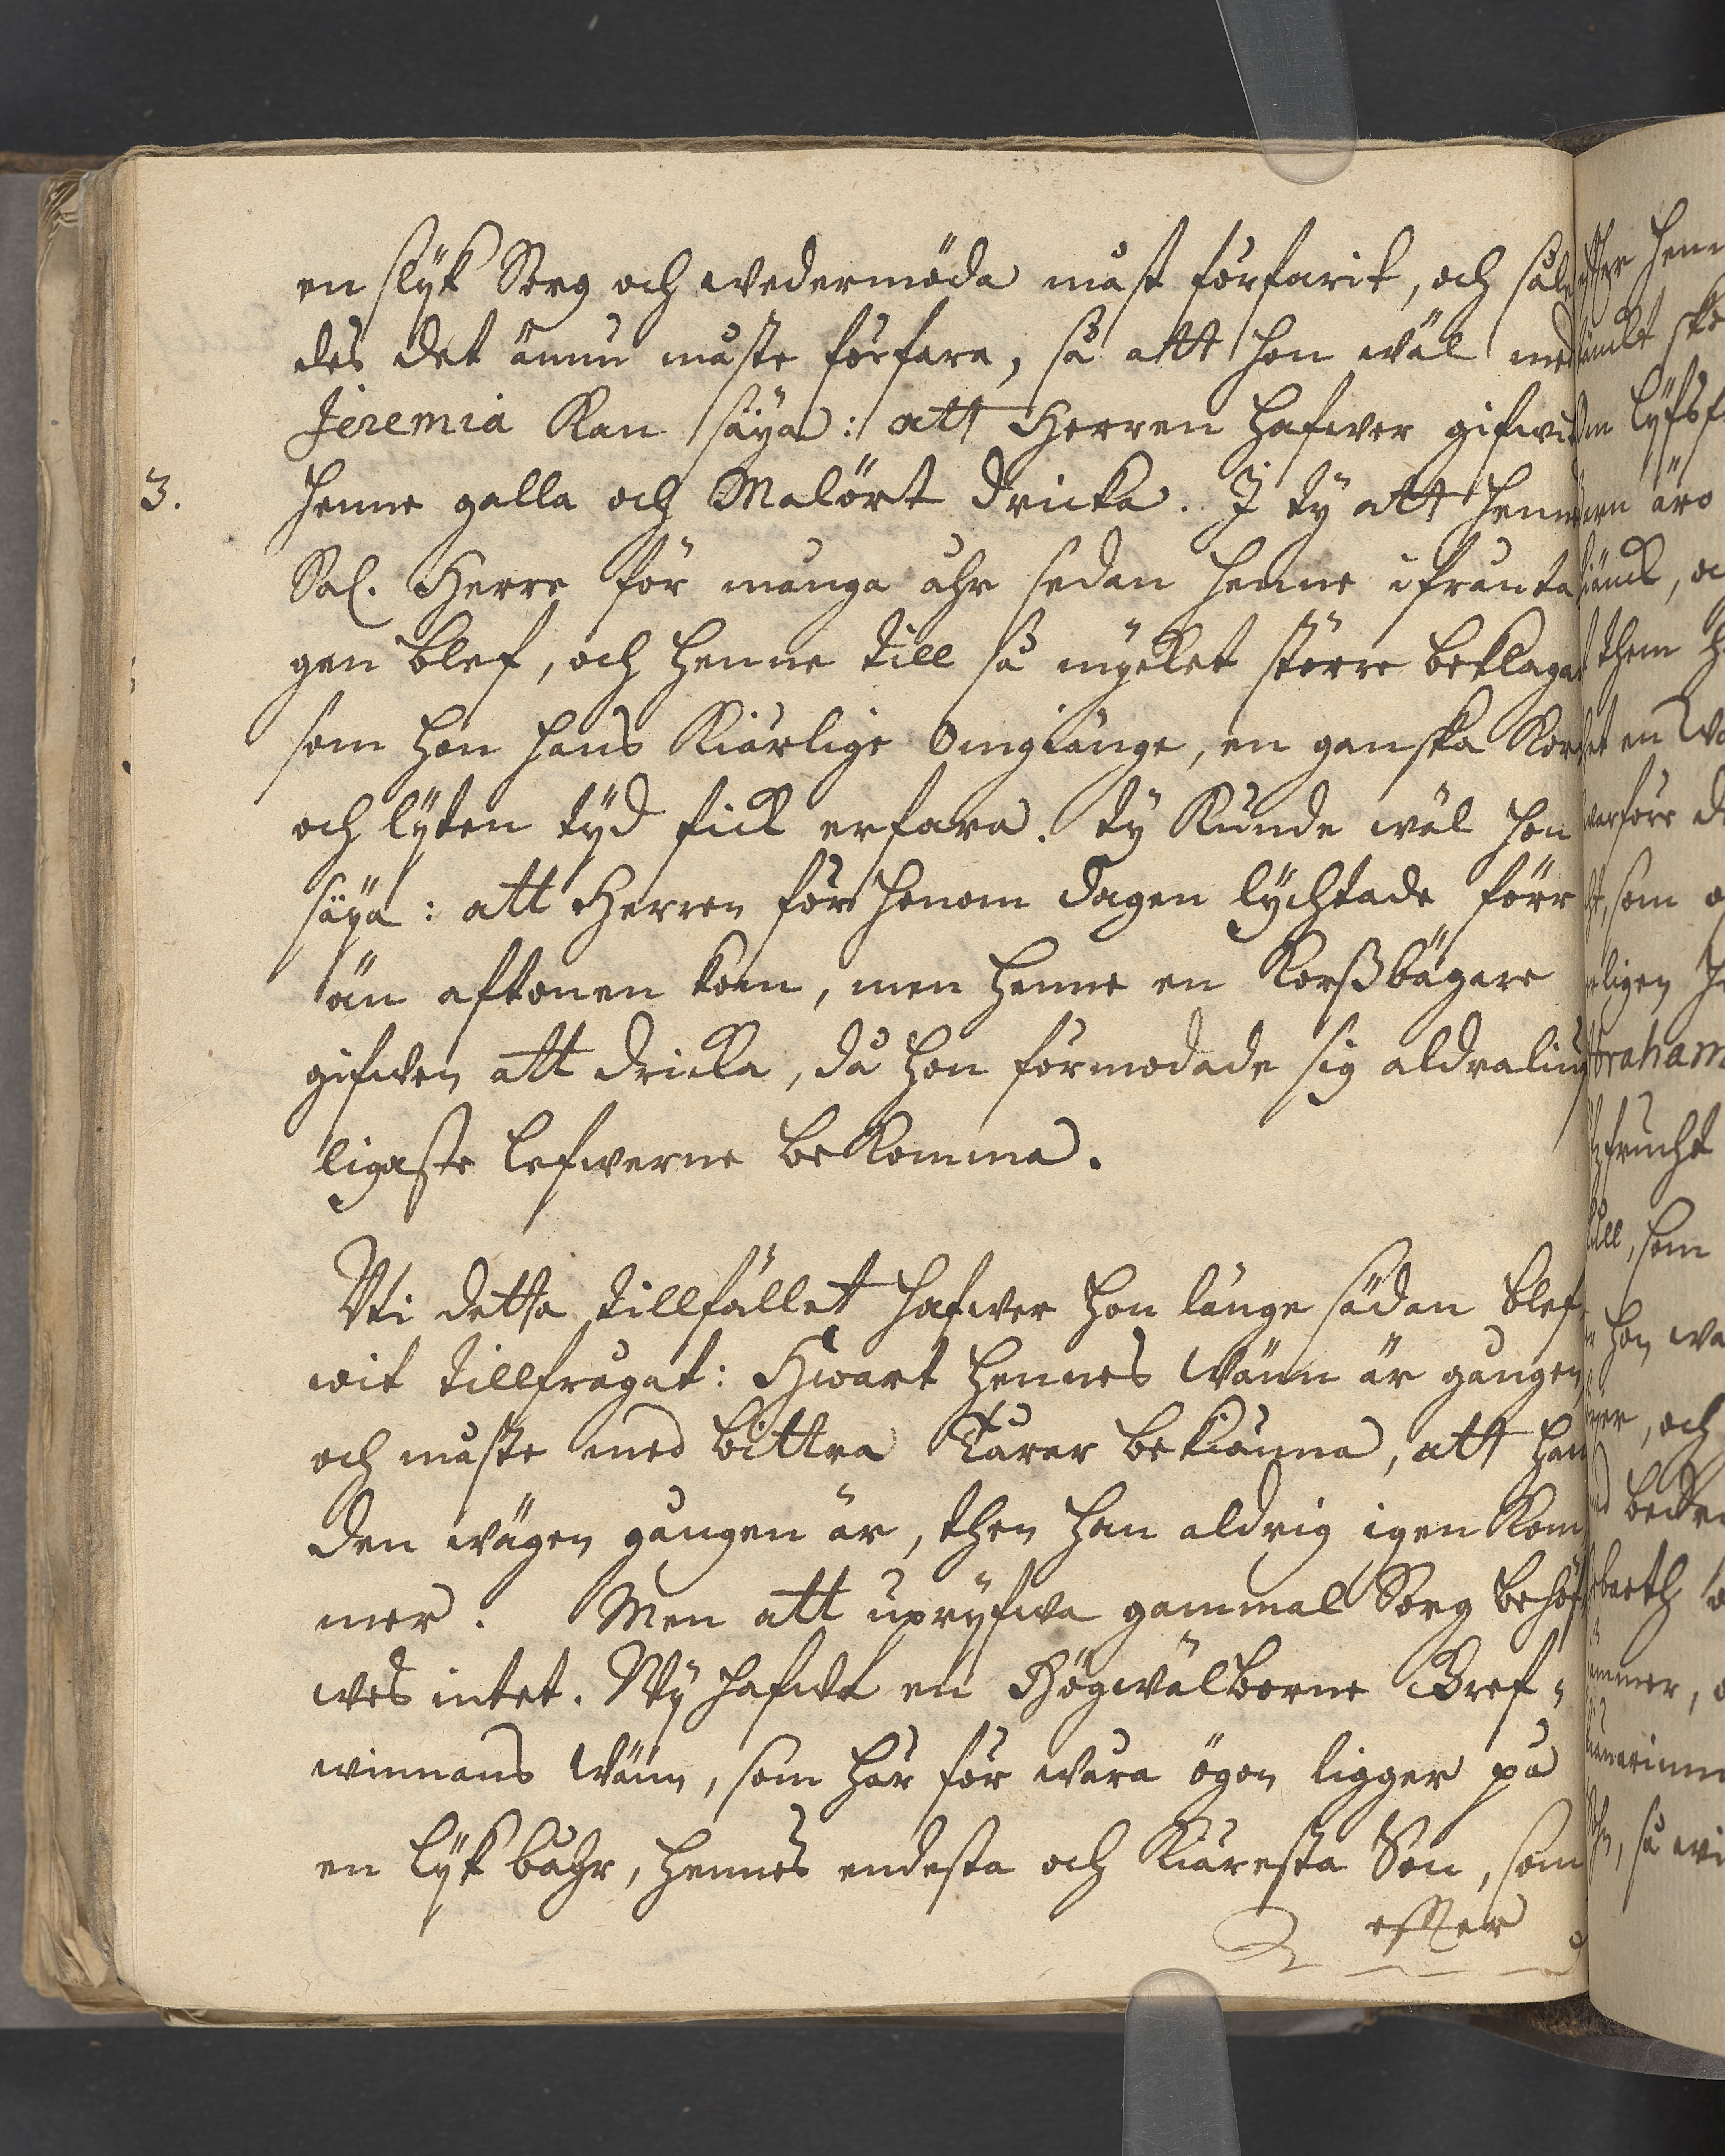 en slÿk Sorg och wedermöda måst förfarit, och såle
des det ännu måste förfara, så att hon wäl med
Jeremia kan säÿa: att Herren hafwer gifwit
3. henne galla och Malört dricka. I tÿ att hennes
Sal. Herre för många åhr sedan henne ifrånta
gen blef, och henne till så mÿcket större beklagat
som hon hans kiärlige Omgiänge, en ganska kort
och lÿten tÿd fick erfara. Tÿ kunde wäl hon
säÿa: att Herren för honom dagen lÿchtade förr
än aftonen kom, men henne en korßbägare
gifwen att dricka, då hon förmodade sig aldraliuf
ligaste lefwerne bekomma.
Uti detta tillfället hafwer hon länge sädan blef
wit tillfrågat: Hwart hennes wänn är gången
och måste med bittra Tårar bekiänna, att han
den wägen gången är, then han aldrig igen kom
mer. Men att uprÿfwa gammal Sorg behöf
wes intet. Wÿ hafwa en Högwälborne Gref-
winnans wänn, som här för wåra ögon ligger på
en lÿk båhr, hennes endesta och kiäresta Son, som
efter